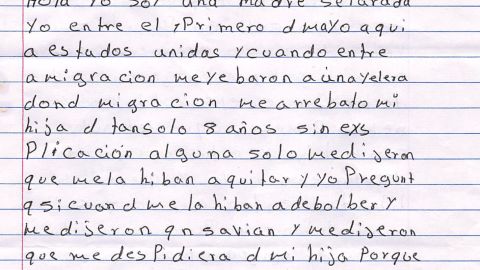 Hola Yo soy una madre separada
Yo entre el , Primero d mayo aqui
a estados unidas y cuando entre
a migracion me yebaron a una yelera
dond migracion me arrebato mi
hija d tansolo 8 años sin exs
Plicación alguna solo me dijeron
que me la hiban a quitar y yo Pregunt
q si cuand me la hiban a debolber y
me dijeron qn savian y me dijeron
que me des Pidiera d mi hija Porque